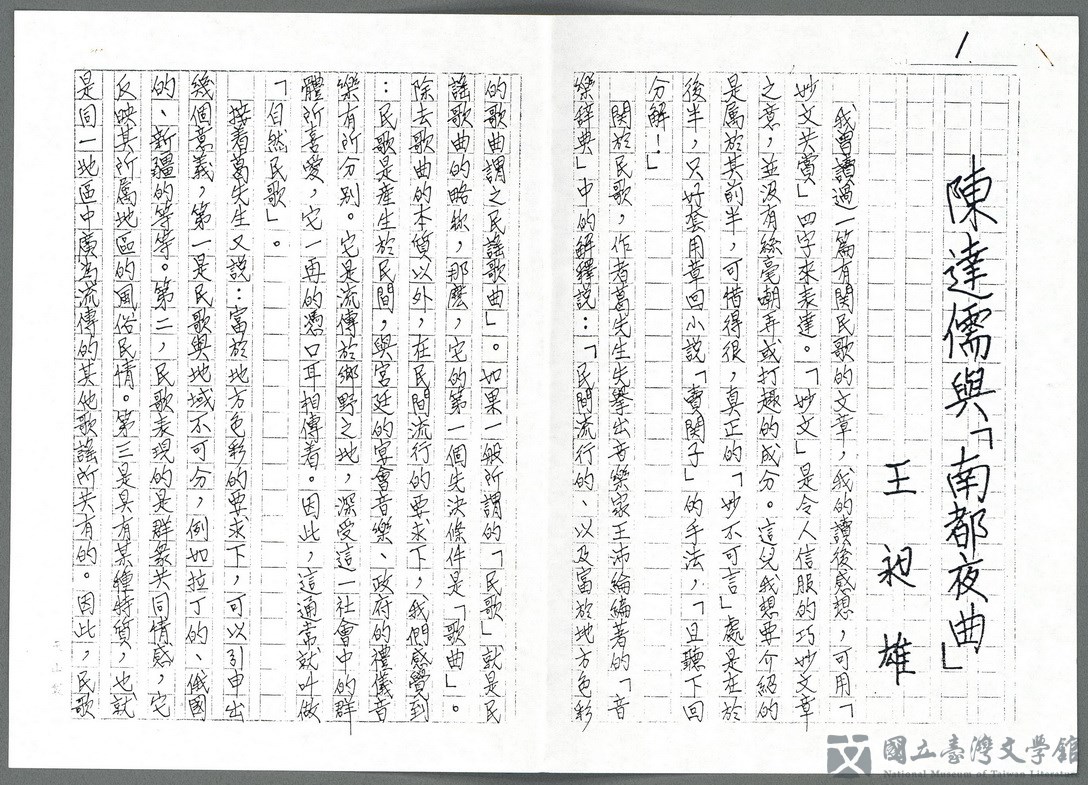 1
陳達儒與「南都夜曲」
王昶雄
我曾讀過一篇有関民歌的文章，我的讀後感想，可用「
妙文共賞」四字來表達。「妙文」是令人信服的巧妙文章
之意，並沒有絲毫嘲弄或打趣的成分。這兒我想要介紹的
是属於其前半，可惜得很，真正的「妙不可言」處是在於
後半，只好套用章回小説「賣関子」的手法，「且聽下回
分解！」
関於民歌，作者葛先生先擧出音樂家王沛綸編著的「音
樂辞典」中的解釋説：「民間流行的、以及富於地方色彩
的歌曲謂之民謡歌曲」。如果一般所謂的「民歌」就是民
謡歌曲的略称，那麽，它的第一個先決條件是「歌曲」。
除去歌曲的本質以外，在民間流行的要求下，我們感覺到
：民歌是産生於民間，與宮廷的宴會音樂、政府的禮儀音
樂有所分别。它是流傳於鄉野之地，深受這一社會中的群
體所喜愛，它一再的憑口耳相傳着。因此，這通常就叫做
「自然民歌」。
接着葛先生又説：富於地方色彩的要求下，可以引申出
幾個意義，第一是民歌與地域不可分，例如拉丁的、俄國
的、新疆的等等。第二，民歌表現的是群衆共同情感，它
反映其所属地區的風俗民情。第三是具有某種特質，也就
是同一地區中廣為流傳的其他歌謡所共有的。因此，民歌
國立臺灣文學館
National Museum of Taiwan Literature